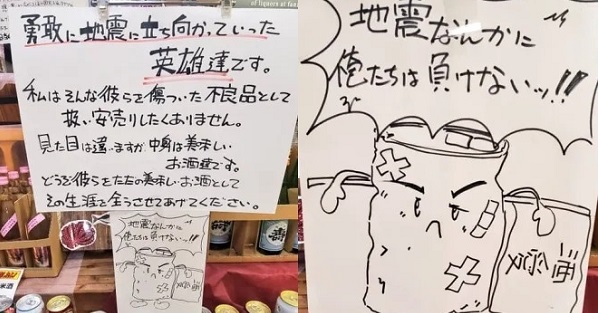 勇敢に地震に立ち向かっていった
英雄達です。
私はそんな彼らを傷ついた不良品として
扱い安売りしたくありません。
見た目は選ますが中身は美味しい
お酒達です。
どうか彼らをただの美味しいお酒として
その生涯を全うさせてあげてください。
地震なんかに
俺たちは負けないッ!!
地震なんかに
俺たちは負けないッ!!